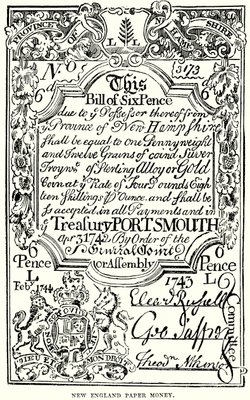 PROVINCE OF NEW HAMP SHIRE
L L
No. 6
(5173)
6d
This
Bill of Six Pence
due to ye Possessor thereof from
ye Province of New Hampshire
shall be equal to one Pennyweight
and Twelve Grains of coind Silver
Troy wt. of Sterling Alloy or Gold
Coin at ye Rate of Four Pounds Eigh
teen Shillings ye Ounce, and shall be
so accepted in all Payments and in
ye Treasury PORTSMOUTH
Apr 3 1742 By Order of the
General Court
or Assembly
6 Pence L
6 Pence L
Feb. 1744
1743
Committee
DIEU ET MON DROIT
NEW ENGLAND PAPER MONEY.